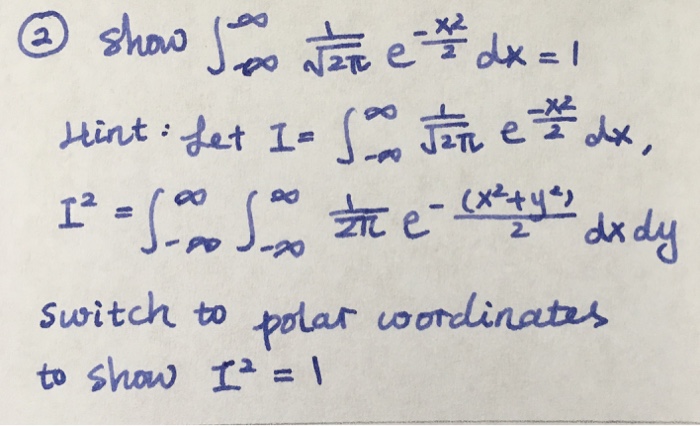 ② show ∫_{-∞}^{∞} 1/√2π e^{-x²/2} dx = 1
Hint : Let I = ∫_{-∞}^{∞} 1/√2π e^{-x²/2} dx,
I² = ∫_{-∞}^{∞} ∫_{-∞}^{∞} 1/2π e^{-(x²+y²)/2} dx dy
switch to polar coordinates
to show I² = 1